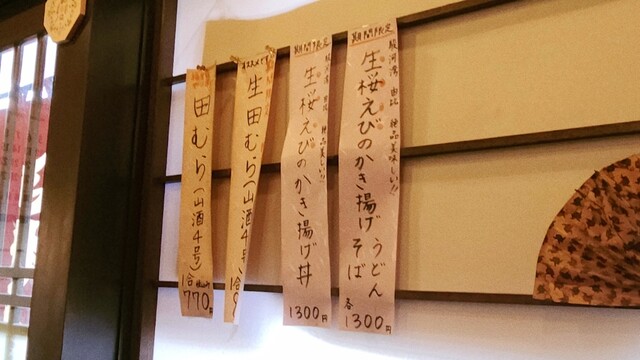 期間限定
駿河湾 由比 絶品美味しい!!
生桜えびのかき揚げ うどん
そば
各
1300円
期間限定
駿河湾 由比 絶品美味しい!!
生桜えびのかき揚げ丼
1300円
生田むら(山酒4号)
1合
田むら(山酒4号)
1合
770円